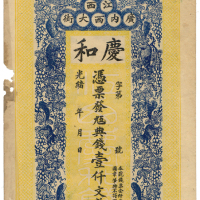 江西
廣內西大街
慶和
字第 號
憑票發足典錢壹仟文
光緒 年 月 日